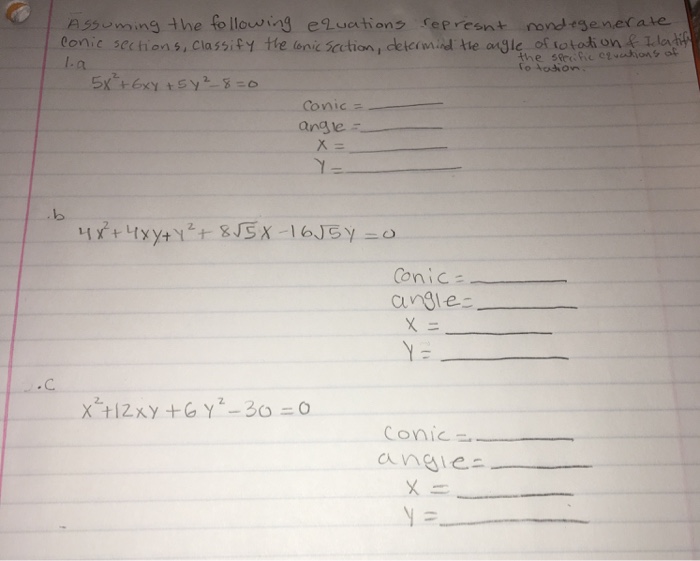 Assuming the following equations represnt nondegenerate
conic sections, classify the conic section, determind the angle of rotation & Idatify
the specific equations of
rotation.
1.a
5x²+6xy+5y²-8=0
Conic =
angle =
X =
Y =
.b
4x²+4xy+y²+8√5x-16√5y=0
Conic =
angle =
X =
Y =
.c
x²+12xy+6y²-30=0
Conic =
angle =
X =
Y =